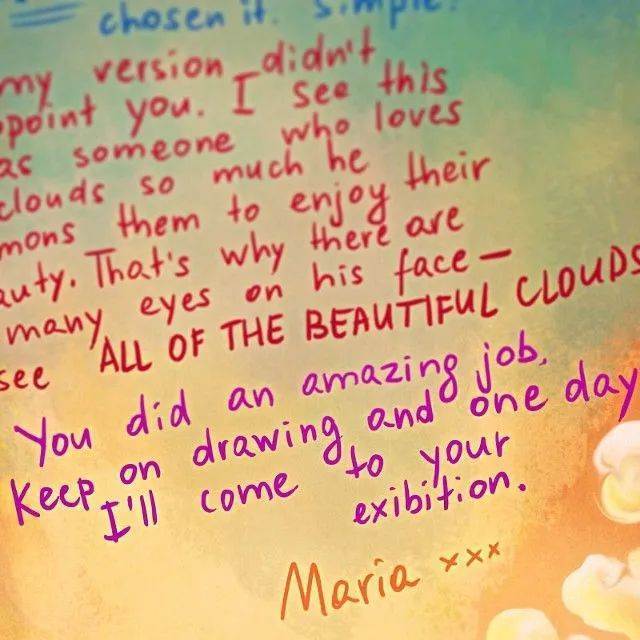 chosen it. Simple.
my version didn't
ppoint you. I see this
as someone who loves
clouds so much he
mons them to enjoy their
auty. That's why there are
many eyes on his face –
see ALL OF THE BEAUTIFUL CLOUDS
You did an amazing job.
Keep on drawing and one day
I'll come to your
exibition.
Maria xxx